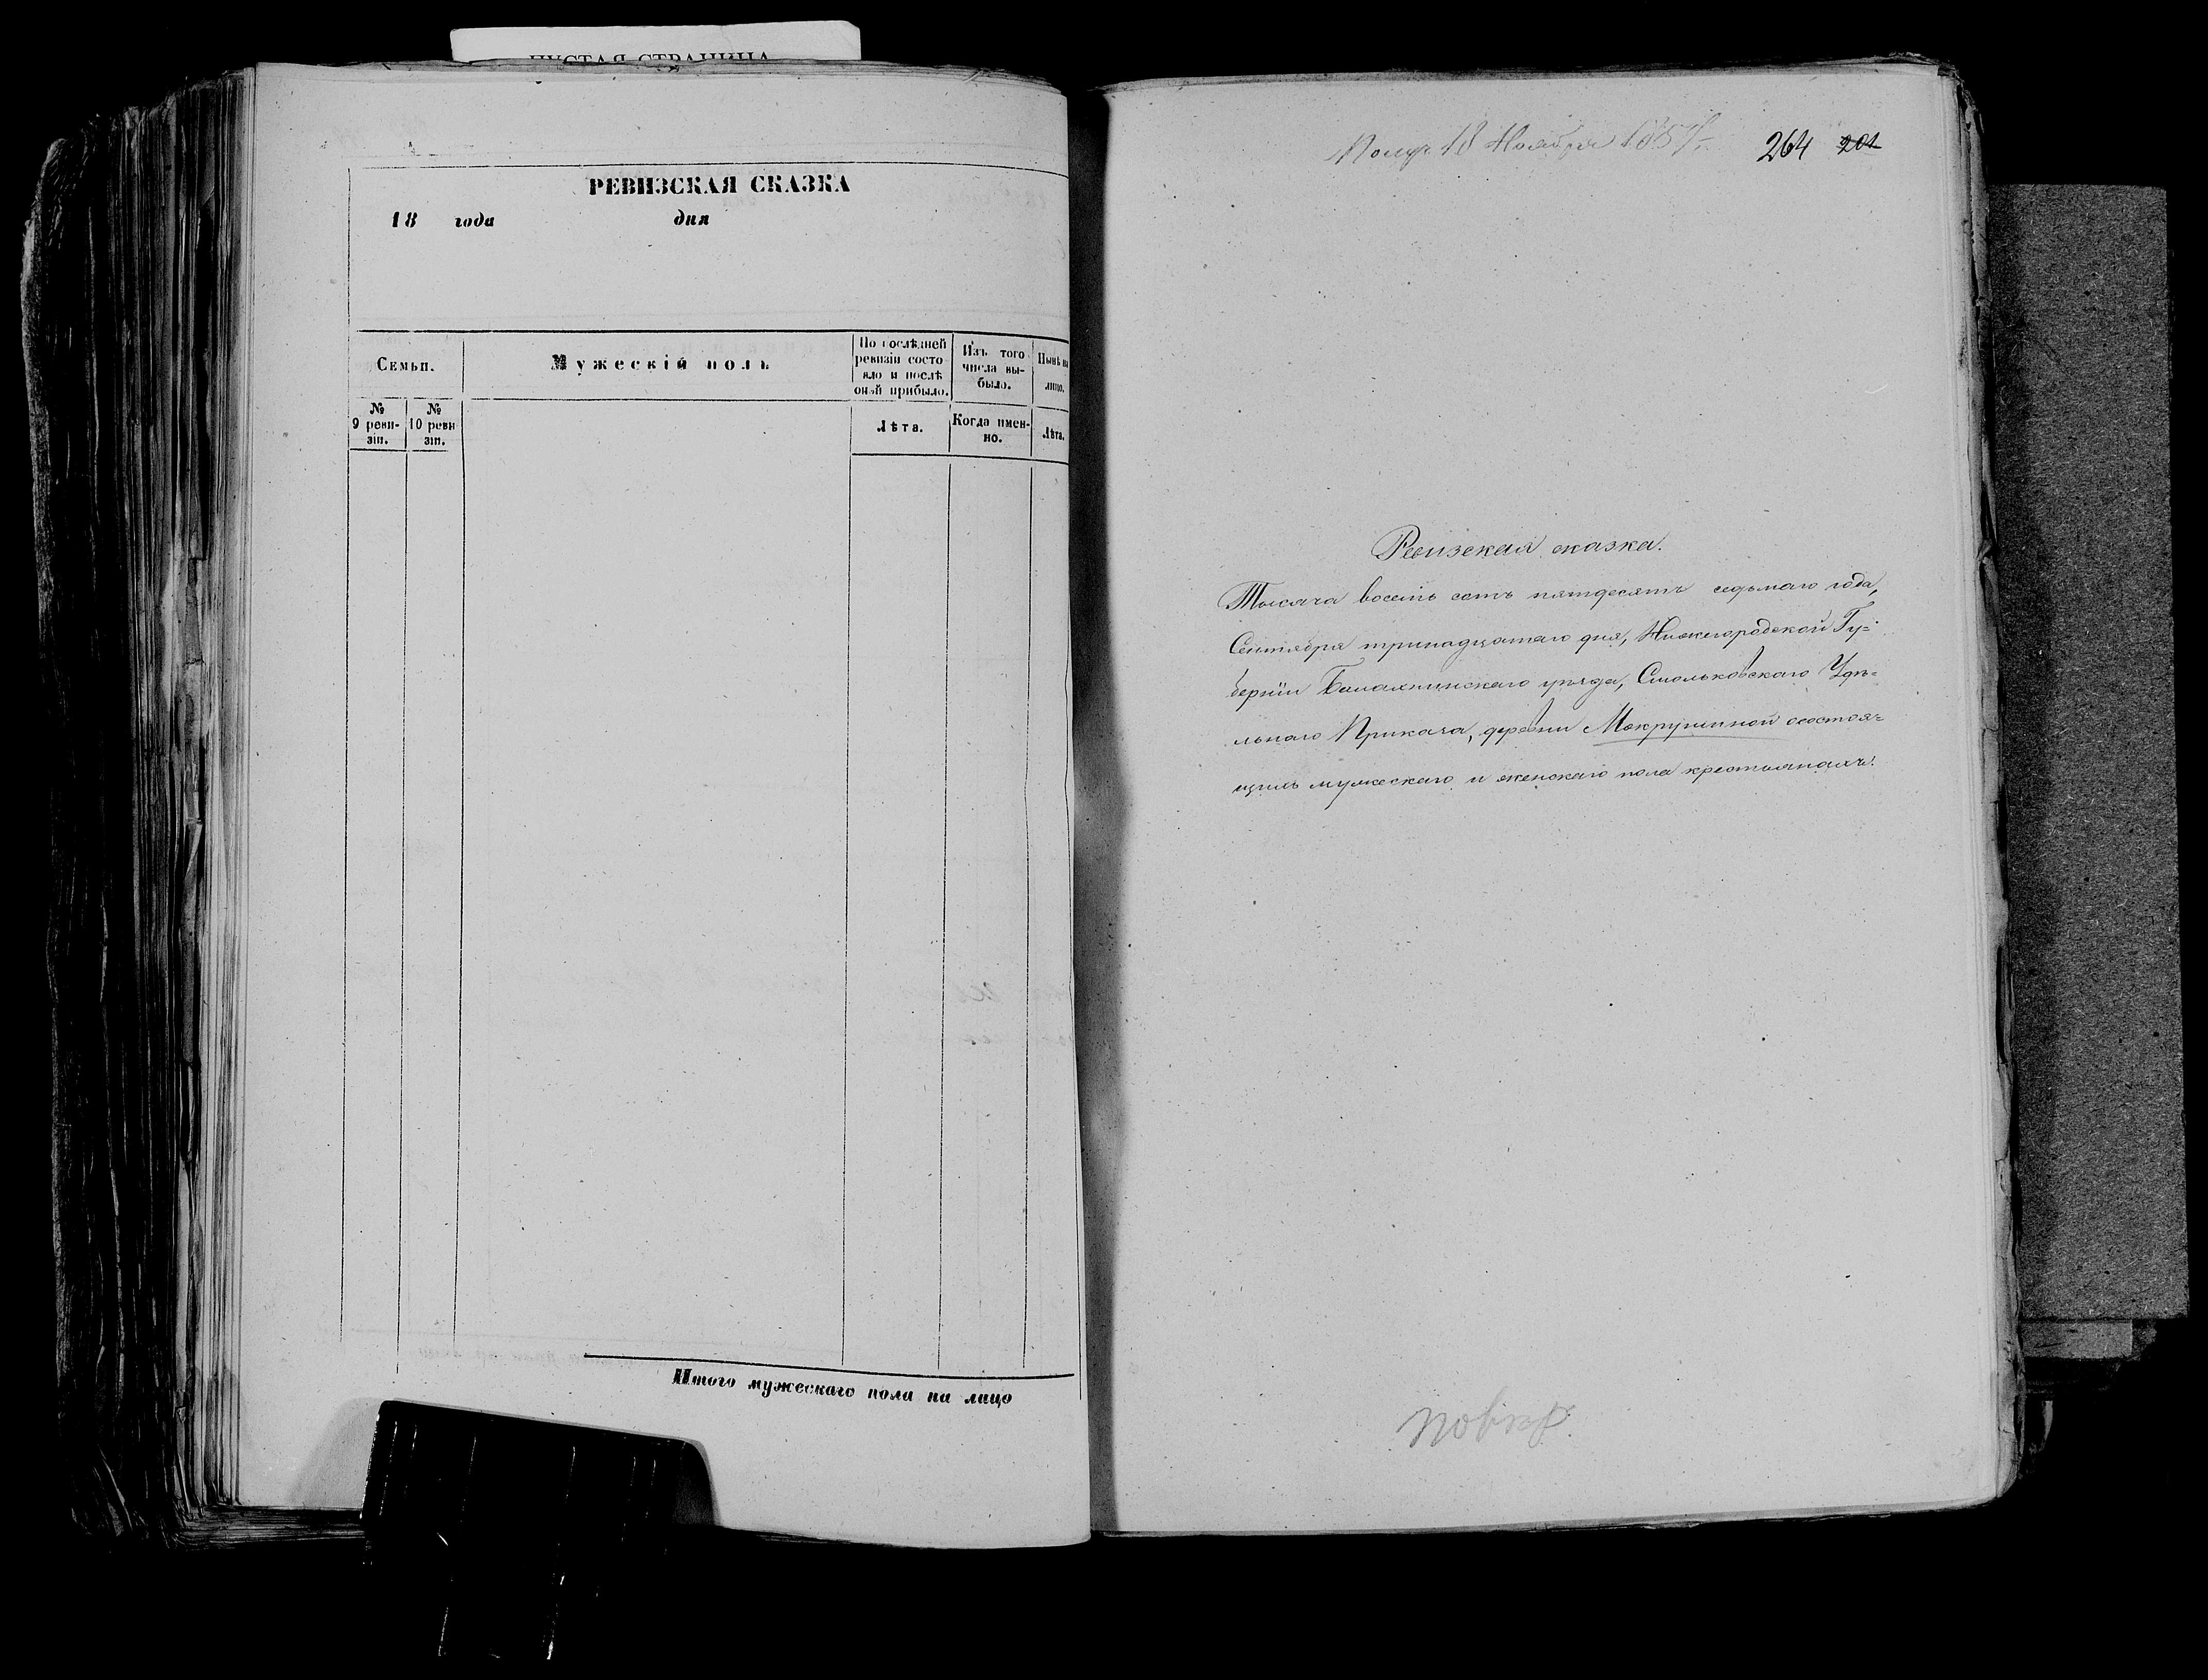 ПУСТАЯ СТРАНИЦА
РЕВИЗСКАЯ СКАЗКА
18 года дня
Семьи.
Мужескій полъ
По послѣдней
ревизіи состо
яло и послѣ
оной прибыло.
Изъ того
числа вы-
было.
Нынѣ на
лицо.
№
9 реви-
зіи.
№
10 реви
зіи.
Лѣта.
Когда имен-
но.
Лѣта.
Итого мужескаго пола на лицо
Получ 18 Ноября 1857 г.
264 201
Ревизская сказка.
Тысяча восемь сотъ пятдесятъ седьмаго года,
Сентября тринадцатаго дня, Нижегородской Гу=
берніи Балахнинскаго уѣзда, Смольковскаго Удѣ=
льнаго Приказа, деревни Мокрушиной осостоя=
щихъ мужескаго и женскаго пола крестьянахъ.